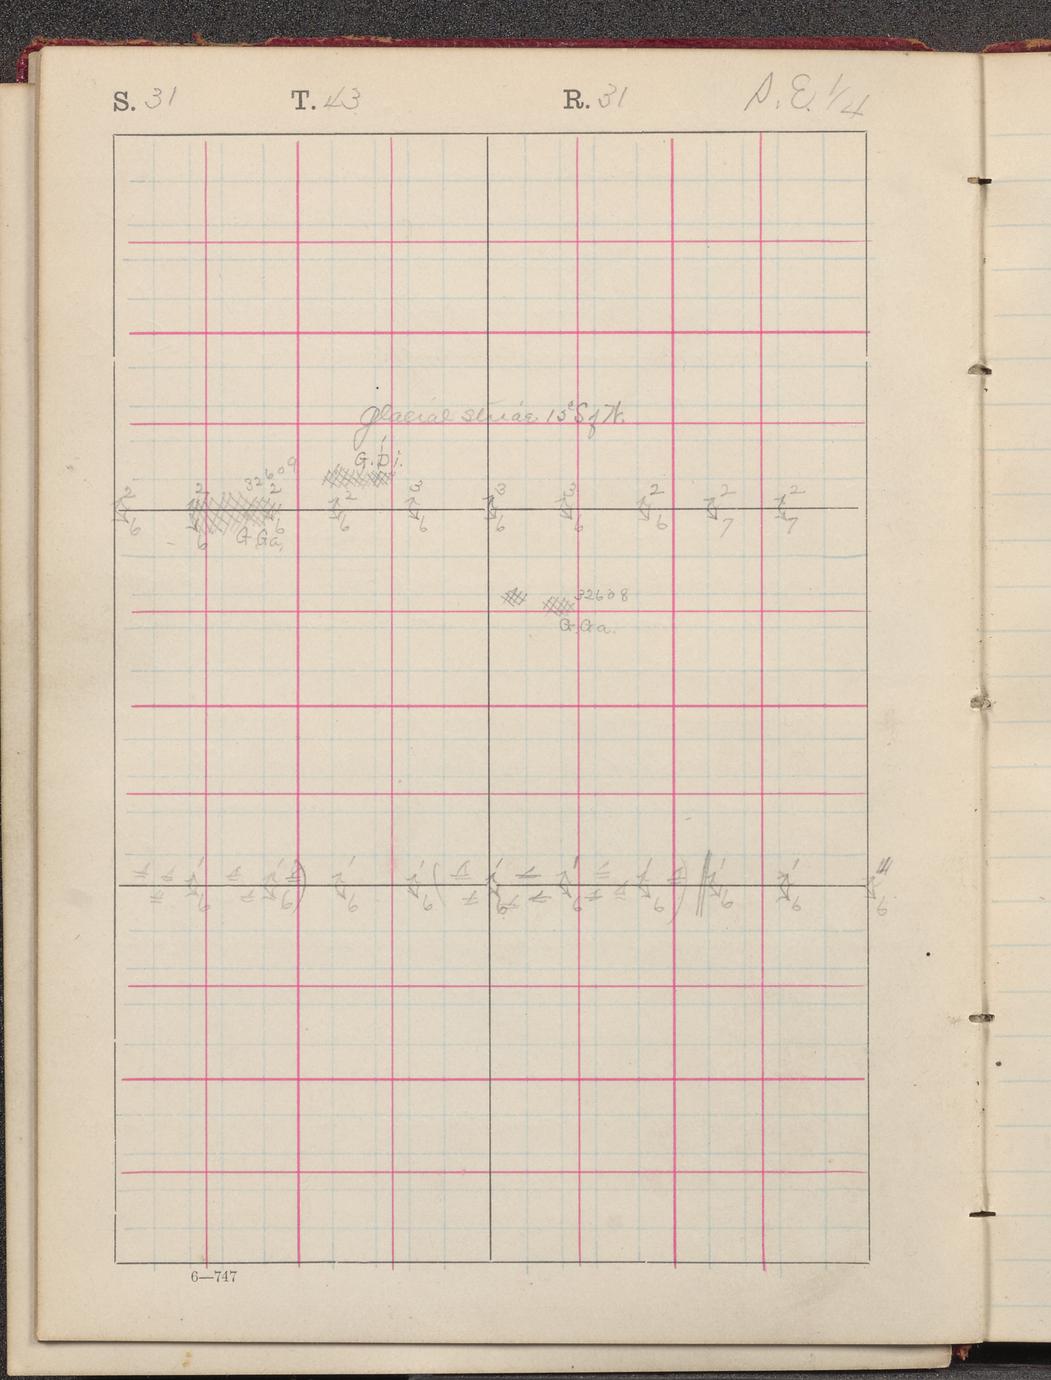 S. 31 T. 43 R. 31 S. E. 1/4
glacial striae 15° S of W.
G. Di.
32609
2 2 2 2 3 3 3 2 2 2
6 6 6 6 6 6 6 6 7 7
G. Ga.
32608
G. Ga.
1 1 1 1 1 1 1 1 1
6 6 6 6 6 6 6 6 6 6
6—747